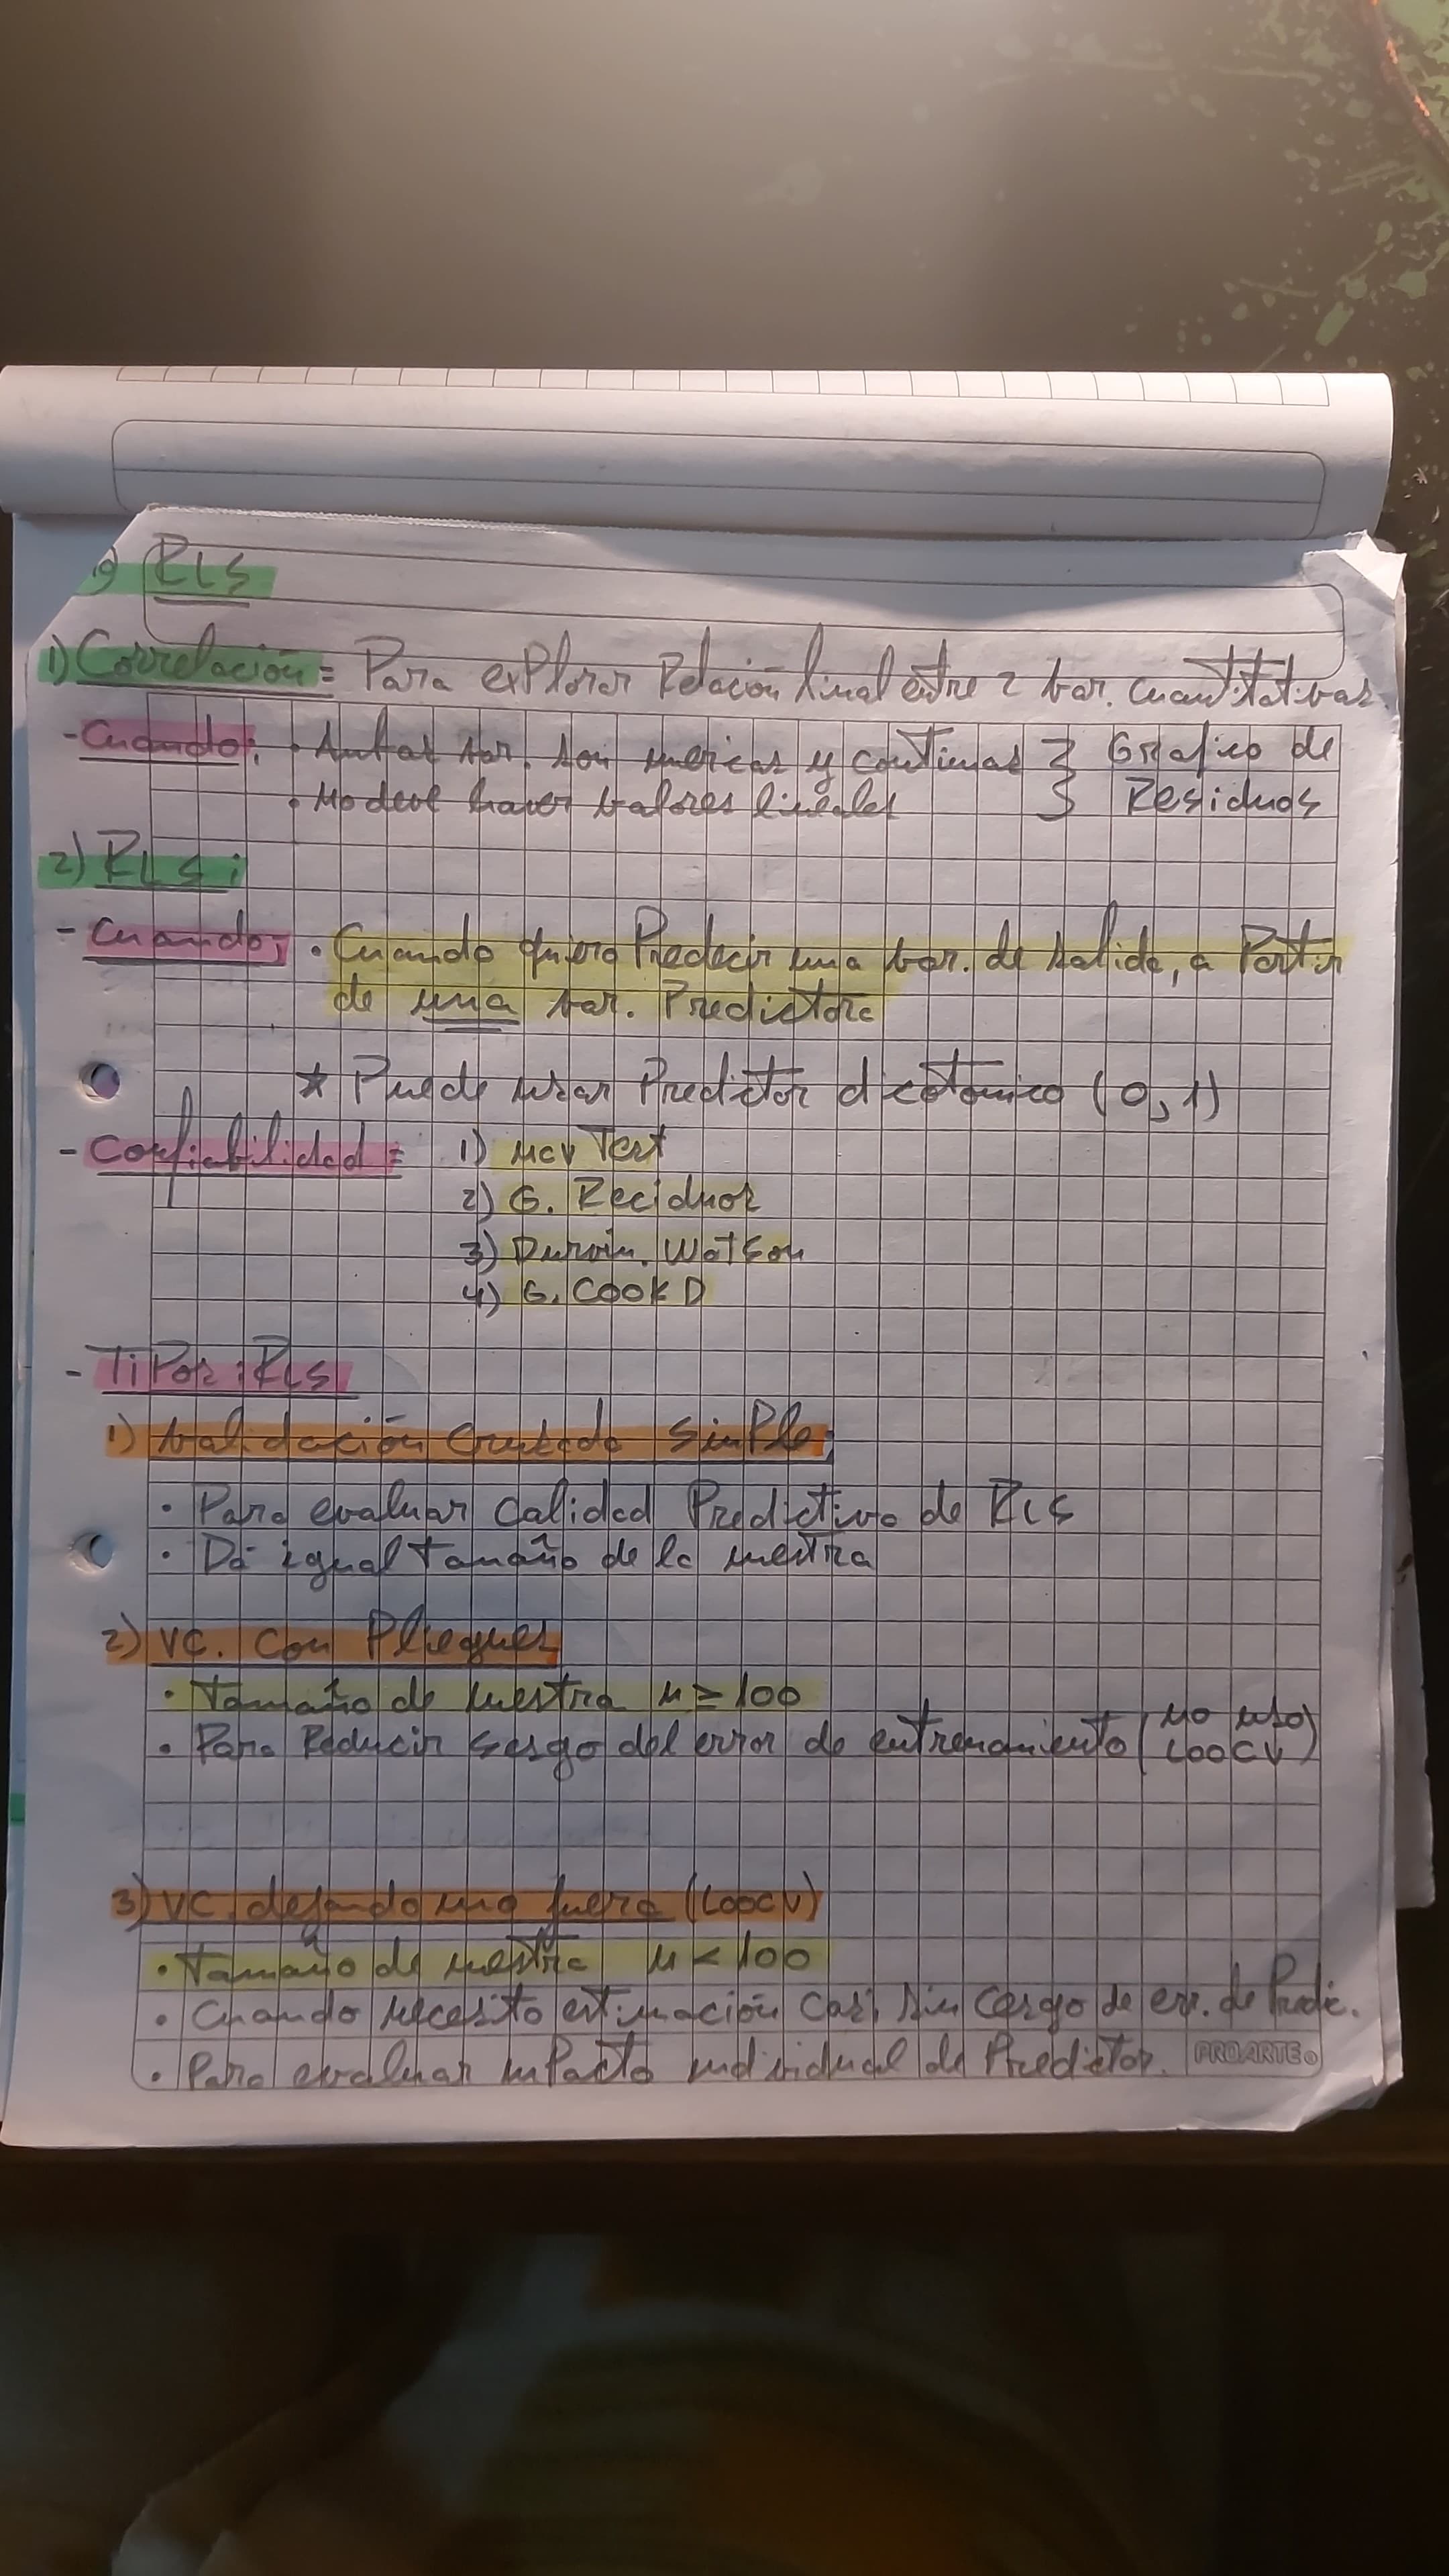 9) RLS
1) Correlación = Para explorar Relación lineal entre 2 var. cuantitativas
- Cuando: • Ambas var. son numericas y continuas } Grafico de
• No deve haver valores lineales } Residuos
2) RLS:
- Cuando: • Cuando quiero Predecir una var. de salida, a Partir
de una var. Predictora
* Puede usar Predictor dicotomico (0,1)
- Confiabilidad = 1) ncv Test
2) G. Reciduos
3) Durvin. Watson
4) G. COOK D
- Tipos: RLS
1) Validación cruzada simple:
• Para evaluar calidad Predictiva de RLS
• Da igual tamaño de la muestra
2) VC. con Pliegues
• Tamaño de muestra n ≥ 100
• Para Reducir sesgo del error de entrenamiento (no uso
LOOCV)
3) VC. dejando uno fuera (LOOCV)
• Tamaño de muestra n < 100
• Cuando necesito estimación casi sin cesgo de err. de Predic.
• Para evaluar inpacto individual de Predictor.
PROARTE